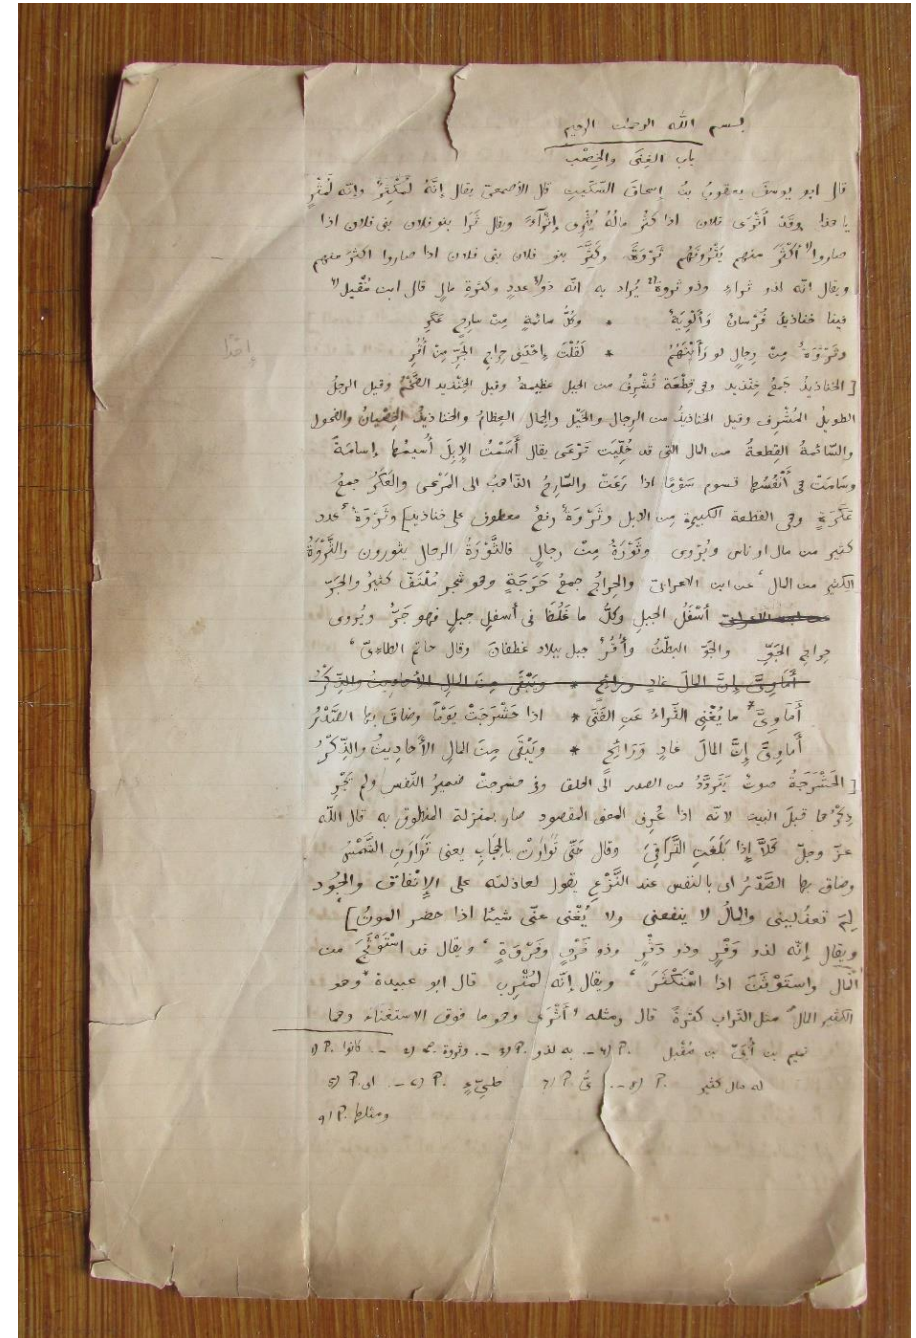 بسم الله الرحمن الرحيم
باب الغِنَى والخِصْب
قال ابو يوسفَ يعقوبُ بنُ إسحاقَ السّكّيتِ قال الأصمعىّ يقال إنّهُ لَمُكْثِرٌ وإنّه لَمُثْرٍ
يا هذا وقَدْ أَثْرَى فلان اذا كَثُرَ مالُهُ يُثْرِى إِثْرَآءً ويقال ثَرَا بنو فلان بنى فلان اذا
صاروا أَكْثَرَ منهم يَثْرُونَهُم ثَرْوَةً وكَثَّرَ بنو فلان بنى فلان اذا صاروا اكثرَ منهم
ويقال انّه لذو ثراءٍ وذو ثروةٍ يُراد به انّه ذو عددٍ وكثرةِ مالٍ قال ابن مُقْبِل
فينا خناذيذُ فُرْسانٌ وَأَلْوِيَةٌ * وكُلُّ سائمةٍ مِنْ سارِحٍ عَكَرِ
وثَرْوَةٌ مِنْ رِجالٍ لو رَأَيْتَهُمُ * لَقُلْتَ إحْدَى حِراجِ الجَرِّ مِنْ أُقُرِ
إحْدَا
[الخناذيذُ جَمعُ خِنْذيذ وهى قِطْعَة تُشْرِفُ من الجبل عظيمة وقيل الخِنْذيذ الضَّخْمُ وقيل الرجلُ
الطويلُ المُشْرِف وقيل الخناذيذُ من الرجال والخَيْل والجبال العِظامُ والخناذيذُ الخِصْيانُ والفحول
والسّائمةُ القِطعةُ من المال التى قد خُلِّيَت تَرْعَى يقال أَسَمْتُ الإبِلَ أُسيمُها إسامَةً
وسَامَتْ هى أَنْفُسُها تسوم سَوْمًا اذا رَعَتْ والسّارِحُ الذّاهبُ الى المَرْعى والعَكَرُ جمعُ
عَكَرَةٍ وهى القطعة الكبيرة مِن الابل وثَرْوَةٌ رفعٌ معطوف على خناذيذ] وثَرْوَةٌ عدد
كثير من مال او ناس ويُرْوى وثَوْرَةٌ مِنْ رجالٍ فالثَّوْرَةُ الرجال يثورون والثَّرْوَةُ
الكثير من المال عن ابن الاعرابىّ والحِراجُ جمعُ حَرَجَةٍ وهو شجر مُلْتَفّ كثيرٌ والجَرّ
عن ابن الاعرابىّ أَسْفَلُ الجبلِ وكلُّ ما غَلُظَ فى أسفلِ جبلٍ فهو جَرٌّ ويُروى
حِراجِ الجَوِّ والجَوّ البطْنُ وأُقُرٌ جبل ببلاد غطفانَ وقال حاتم الطاءىّ
أَماوِىَّ إنَّ المالَ غادٍ ورائحٌ * ويَبْقَى مِنَ المالِ الأَحاديثُ والذِّكْرُ
أَمَاوِىَّ ما يُغْنِى الثَّراءُ عَنِ الفَتَى * اذا حَشْرَجَتْ يَوْمًا وضاقَ بها الصَّدْرُ
أَماوِىَّ إنَّ المالَ غادٍ وَرَائحٌ * ويَبْقَى مِنَ المالِ الأَحادِيثُ والذِّكْرُ
[الحَشْرَجَةُ صوتٌ يَتَرَدَّدُ من الصدر الى الحلق وفى حشرجتْ ضميرُ النّفس ولم يَجْرِ
ذِكْرُها قبلَ البيت لانّه اذا عُرِف المعنى المقصود صار بمنزلة المنطوق به قال الله
عزّ وجلّ كَلاَّ إذا بَلَغَتِ التَّرَاقِىَ وقال حَتَّى تَوارَتْ بالحِجَابِ يعنى تَوارَتِ الشَّمْسُ
وضاق بها الصَّدْرُ اى بالنفس عند النَّزْعِ يقول لعاذلته على الإِنْفاق والجُود
لِمَ تعذُلينى والمالُ لا ينفعنى ولا يُغْنى عنّى شيئا اذا حضر الموتُ]
ويقال إنّه لذو وَفْرٍ وذو دَثْرٍ وذو فَرْوٍ وفَرْوَةٍ ويقال قد اسْتَوْثَجَ من
المال واستَوْثَنَ اذا اسْتَكْثَرَ ويقال إنّه لَمُتْرِب قال ابو عبيدة وهو
الكثير المال مثل التّراب كثرةً قال ومثله أَثْرَى وهو ما فوق الاستغناء وهما
تميم بن أُبَىِّ بن مُقْبِل
له مال كثير
ومثلها